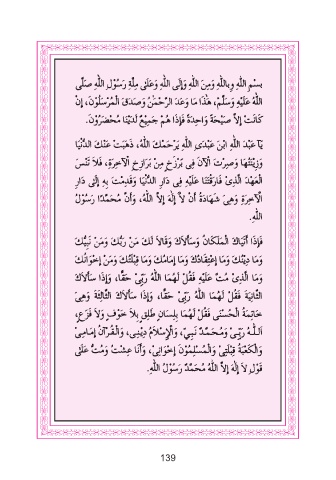 بِسْمِ اللهِ وَبِاللهِ وَمِنَ اللهِ وَإِلَى اللهِ وَعَلَى مِلَّةِ رَسُوْلِ اللهِ صَلَّى
اللهُ عَلَيْهِ وَسَلَّمَ، هٰذَا مَا وَعَدَ الرَّحْمٰنُ وَصَدَقَ الْمُرْسَلُوْنَ، إِنْ
كَانَتْ إِلاَّ صَيْحَةً وَاحِدَةً فَإِذَا هُمْ جَمِيْعٌ لَدَيْنَا مُحْضَرُوْنَ.
يَا عَبْدَ اللهِ ابْنَ عَبْدَىِ اللهِ يَرْحَمُكَ اللهُ، ذَهَبَتْ عَنْكَ الدُّنْيَا
وَزِيْنَتُهَا وَصِرْتَ الْآنَ فِى بَرْزَخٍ مِنْ بَرَازِخِ الْآخِرَةِ، فَلاَ تَنْسَ
الْعَهْدَ الَّذِىْ فَارَقْتَنَا عَلَيْهِ فِى دَارِ الدُّنْيَا وَقَدِمْتَ بِهِ إِلَى دَارِ
الْآخِرَةِ وَهِىَ شَهَادَةُ أَنْ لاَ إِلٰهَ إِلاَّ اللهُ، وَأَنَّ مُحَمَّدًا رَسُوْلُ
اللهِ.
فَإِذَا أَتَيَاكَ الْمَلَكَانُ وَسَأَلاَكَ وَقَالاَ لَكَ مَنْ رَبُّكَ وَمَنْ نَبِيُّكَ
وَمَا دِيْنُكَ وَمَا إِعْتِقَادُكَ وَمَا إِمَامُكَ وَمَا قِبْلَتُكَ وَمَنْ إِخْوَانُكَ
وَمَا الَّذِىْ مُتَّ عَلَيْهِ فَقُلْ لَهُمَا اللهُ رَبِّىْ حَقًّا، وَإِذَا سَأَلاَكَ
الثَّانِيَةَ فَقُلْ لَهُمَا اللهُ رَبِّىْ حَقًّا، وَإِذَا سَأَلاَكَ الثَّالِثَةَ وَهِىَ
خَاتِمَةُ الْحُسْنَى فَقُلْ لَهُمَا بِلِسَانٍ طَلِقٍ بِلاَ خَوْفٍ وَلاَ فَزَعٍ،
اَللهُ رَبِّىْ وَمُحَمَّدٌ نَبِيِّ، وَالْإِسْلاَمُ دِيْنِى، وَالْقُرْآنُ إِمَامِىْ
وَالْكَعْبَةُ قِبْلَتِىْ وَالْمُسْلِمُوْنَ إِخْوَانِىْ، وَأَنَا عِشْتُ وَمُتُّ عَلَى
قَوْلِ لاَ إِلٰهَ إِلاَّ اللهُ مُحَمَّدٌ رَسُوْلُ اللهِ.
139